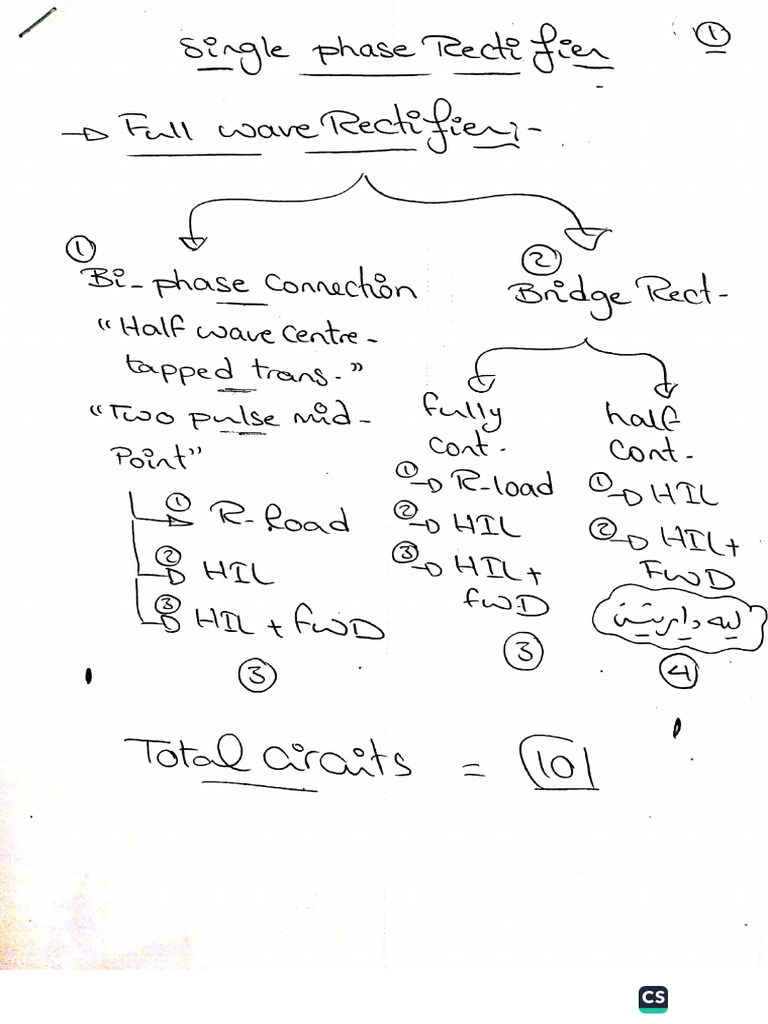 ①
Single phase Rectifier
→ Full wave Rectifier:-
①
Bi-phase Connection
"Half wave Centre-
tapped trans."
"Two pulse mid-
Point"
① R-Load
② HIL
③ HIL + FWD
③
②
Bridge Rect-
fully
Cont.
① → R-load
② → HIL
③ → HIL +
FWD
③
half
Cont.
① → HIL
② → HIL +
FWD
ليه دايرتين
④
Total Circuits = 10
CS